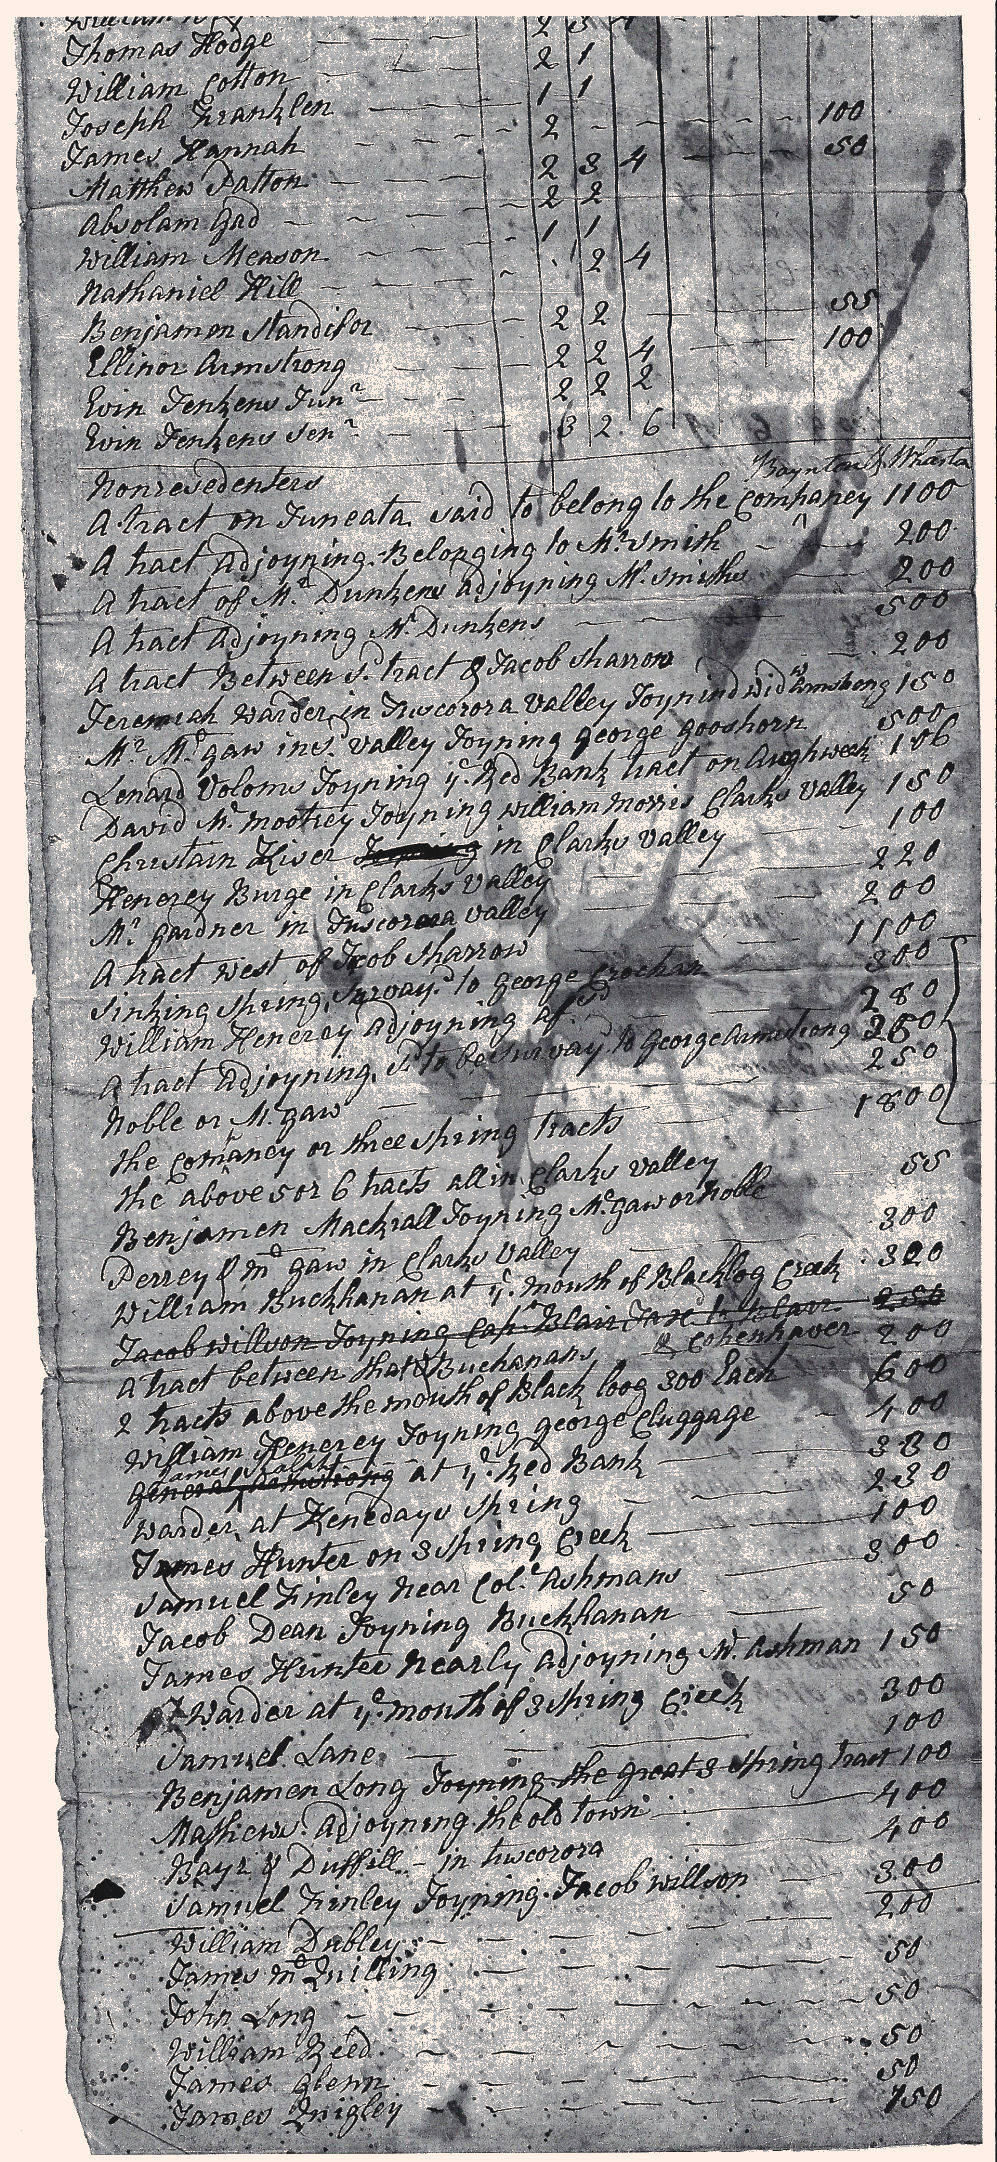 William
Thomas Hodge 2 1
William Cotton 1 1
Joseph Franklen 2 100
James Hannah 2 3 4 50
Matthew Patton 2 2
Absolam Gad 1 1
William Meason 2 4
Nathaniel Hill 55
Benjamen Standifor 2 2 100
Ellinor Armstrong 2 2 4
Evin Jenkens Junr 2 2 2
Evin Jenkens Senr 3 2 6
Nonresedenters
Baynton & Wharton
A tract on Juneata said to belong to the Compbaney 1100
A tract adjoyning Belonging to Mr Smith 200
A tract of Mr Dunkens adjoyning Mr Smiths 200
A tract adjoyning Mr Dunkens 500
A tract Between sd tract & Jacob Sharrow 200
Jeremiah Warder in Tuscorora Valley Joynind widw Armstrong 150
Mr Mc gaw in sd Valley Joyning george gooshorn 500
Lenard Voloms Joyning ye Red Bank tract on Aughweek 106
David Mc Mootrey Joyning william Morris Clarks Valley 150
Christain Kiser in Clarks Valley 100
Henerey Burge in Clarks Valley 220
Mr gardner in Tuscorora Valley 200
A tract west of Jacob Sharrow 1100
Sinking Spring, Survayd to George Crochan 300
William Henerey adjoyning at sd 280
A tract adjoyning, sd to be Survayd to George Armstrong 250
Noble or Mc gaw 250
the Companey or three Spring tracts 1800
the above 5 or 6 tracts all in Clarks Valley
Benjamen Mackrall Joyning Mc gaw or noble 55
Perrey & Mc gaw in Clarks Valley 300
William Buckhanan at ye mouth of Blacklog Creek 320
Jacob Willson Joyning Capt Blair
A tract between that & Buchanans & Cohenhaver 200
2 tracts above the mouth of Black loog 300 Each 600
William Henerey Joyning george Cluggage 400
General Armstrong at ye Red Bank 330
Warder at Kenedays Spring 230
James Hunter on 3 Spring Creek 100
Samuel Finley Near Col. Ashmans 300
Jacob Dean Joyning Buckhanan 50
James Hunter Nearly adjoyning Mr Ashman 150
Warder at ye mouth of 3 Spring Creek 300
Samuel Lane 100
Benjamen Long Joyning the great 3 Spring tract 100
Mathews adjoyning the old town 400
Bayr & Duffell in tuscorora 400
Samuel Finley Joyning Jacob willson 300
William Dabley 200
James Mc Quilling 50
John Long 50
William Reed 50
James Glenn 50
James Quigley 150